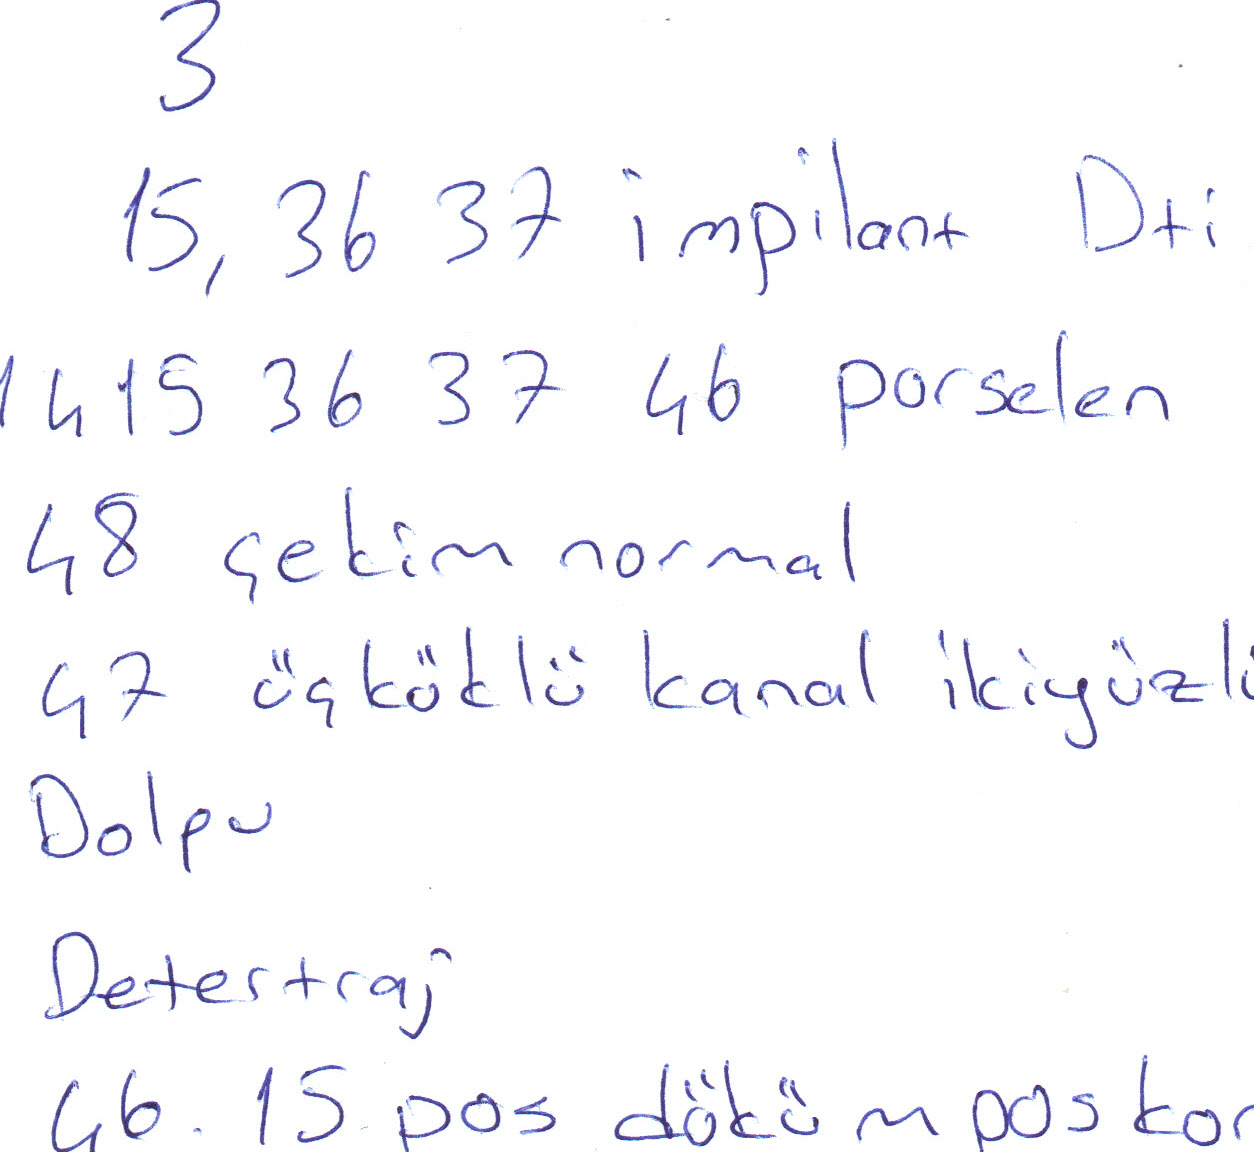 3
15, 36 37 impilant Dti
14 15 36 37 46 porselen
48 çekim normal
47 üçköklü kanal ikiyüzlü
Dolpu
Detertraj
46. 15 pos döküm pos kor